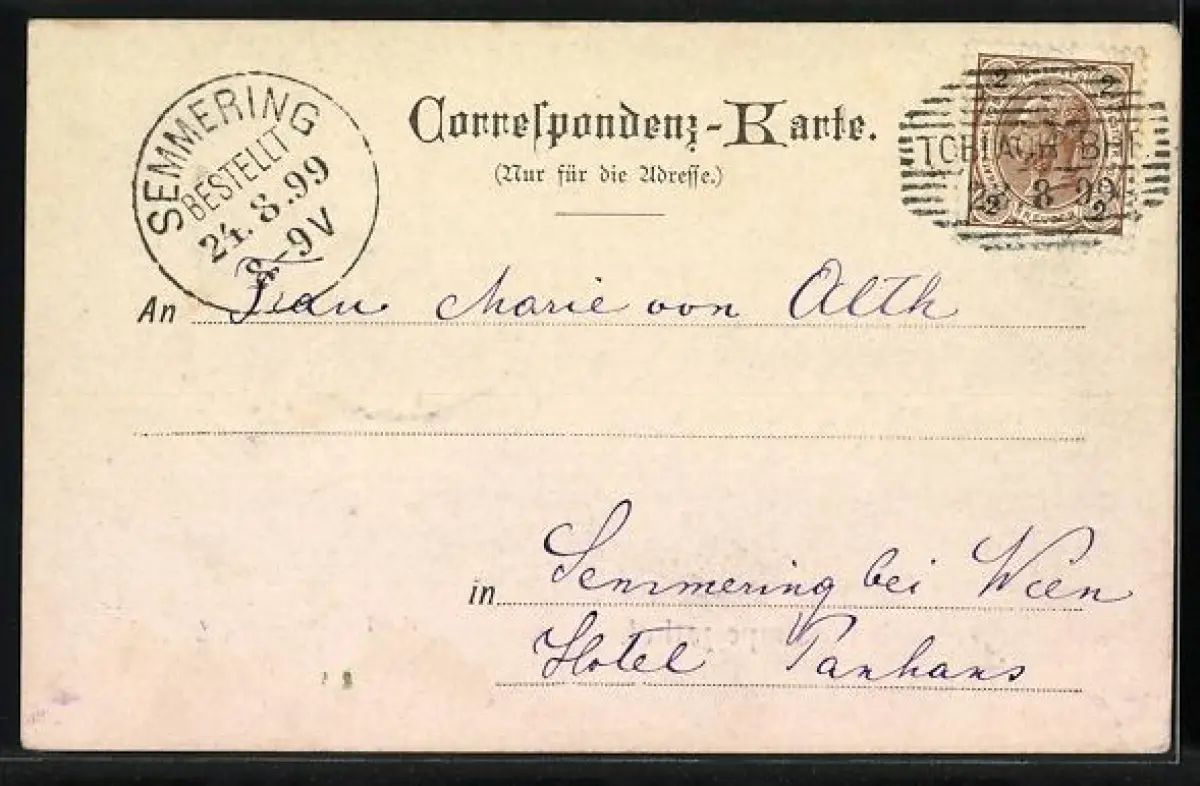 SEMMERING
BESTELLT
24.8.99
8-9V
Correspondenz-Karte.
(Nur für die Adresse.)
2 2
TOBLACH
23 8 99
2 2
An Frau Marie von Alth
in Semmering bei Wien
Hotel Panhans